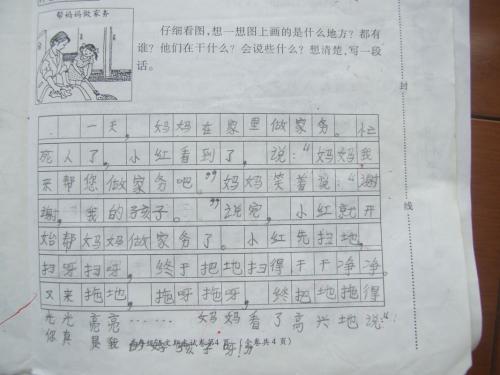 帮妈妈做家务
仔细看图,想一想图上画的是什么地方?都有
谁?他们在干什么?会说些什么?想清楚,写一段
话。
封
一天,妈妈在家里做家务。忙
死人了,小红看到了,说:“妈妈我
来帮您做家务吧。”妈妈笑着说:“谢
谢,我的孩子。”说完,小红就开
始帮妈妈做家务了。小红先扫地。
线
扫呀扫呀,终于把地扫得干干净净。
又来拖地,拖呀拖呀,终把地拖得
光光亮亮……妈妈看了高兴地说:“
你真是我的好孩子呀!”
第4页(全卷共4页)